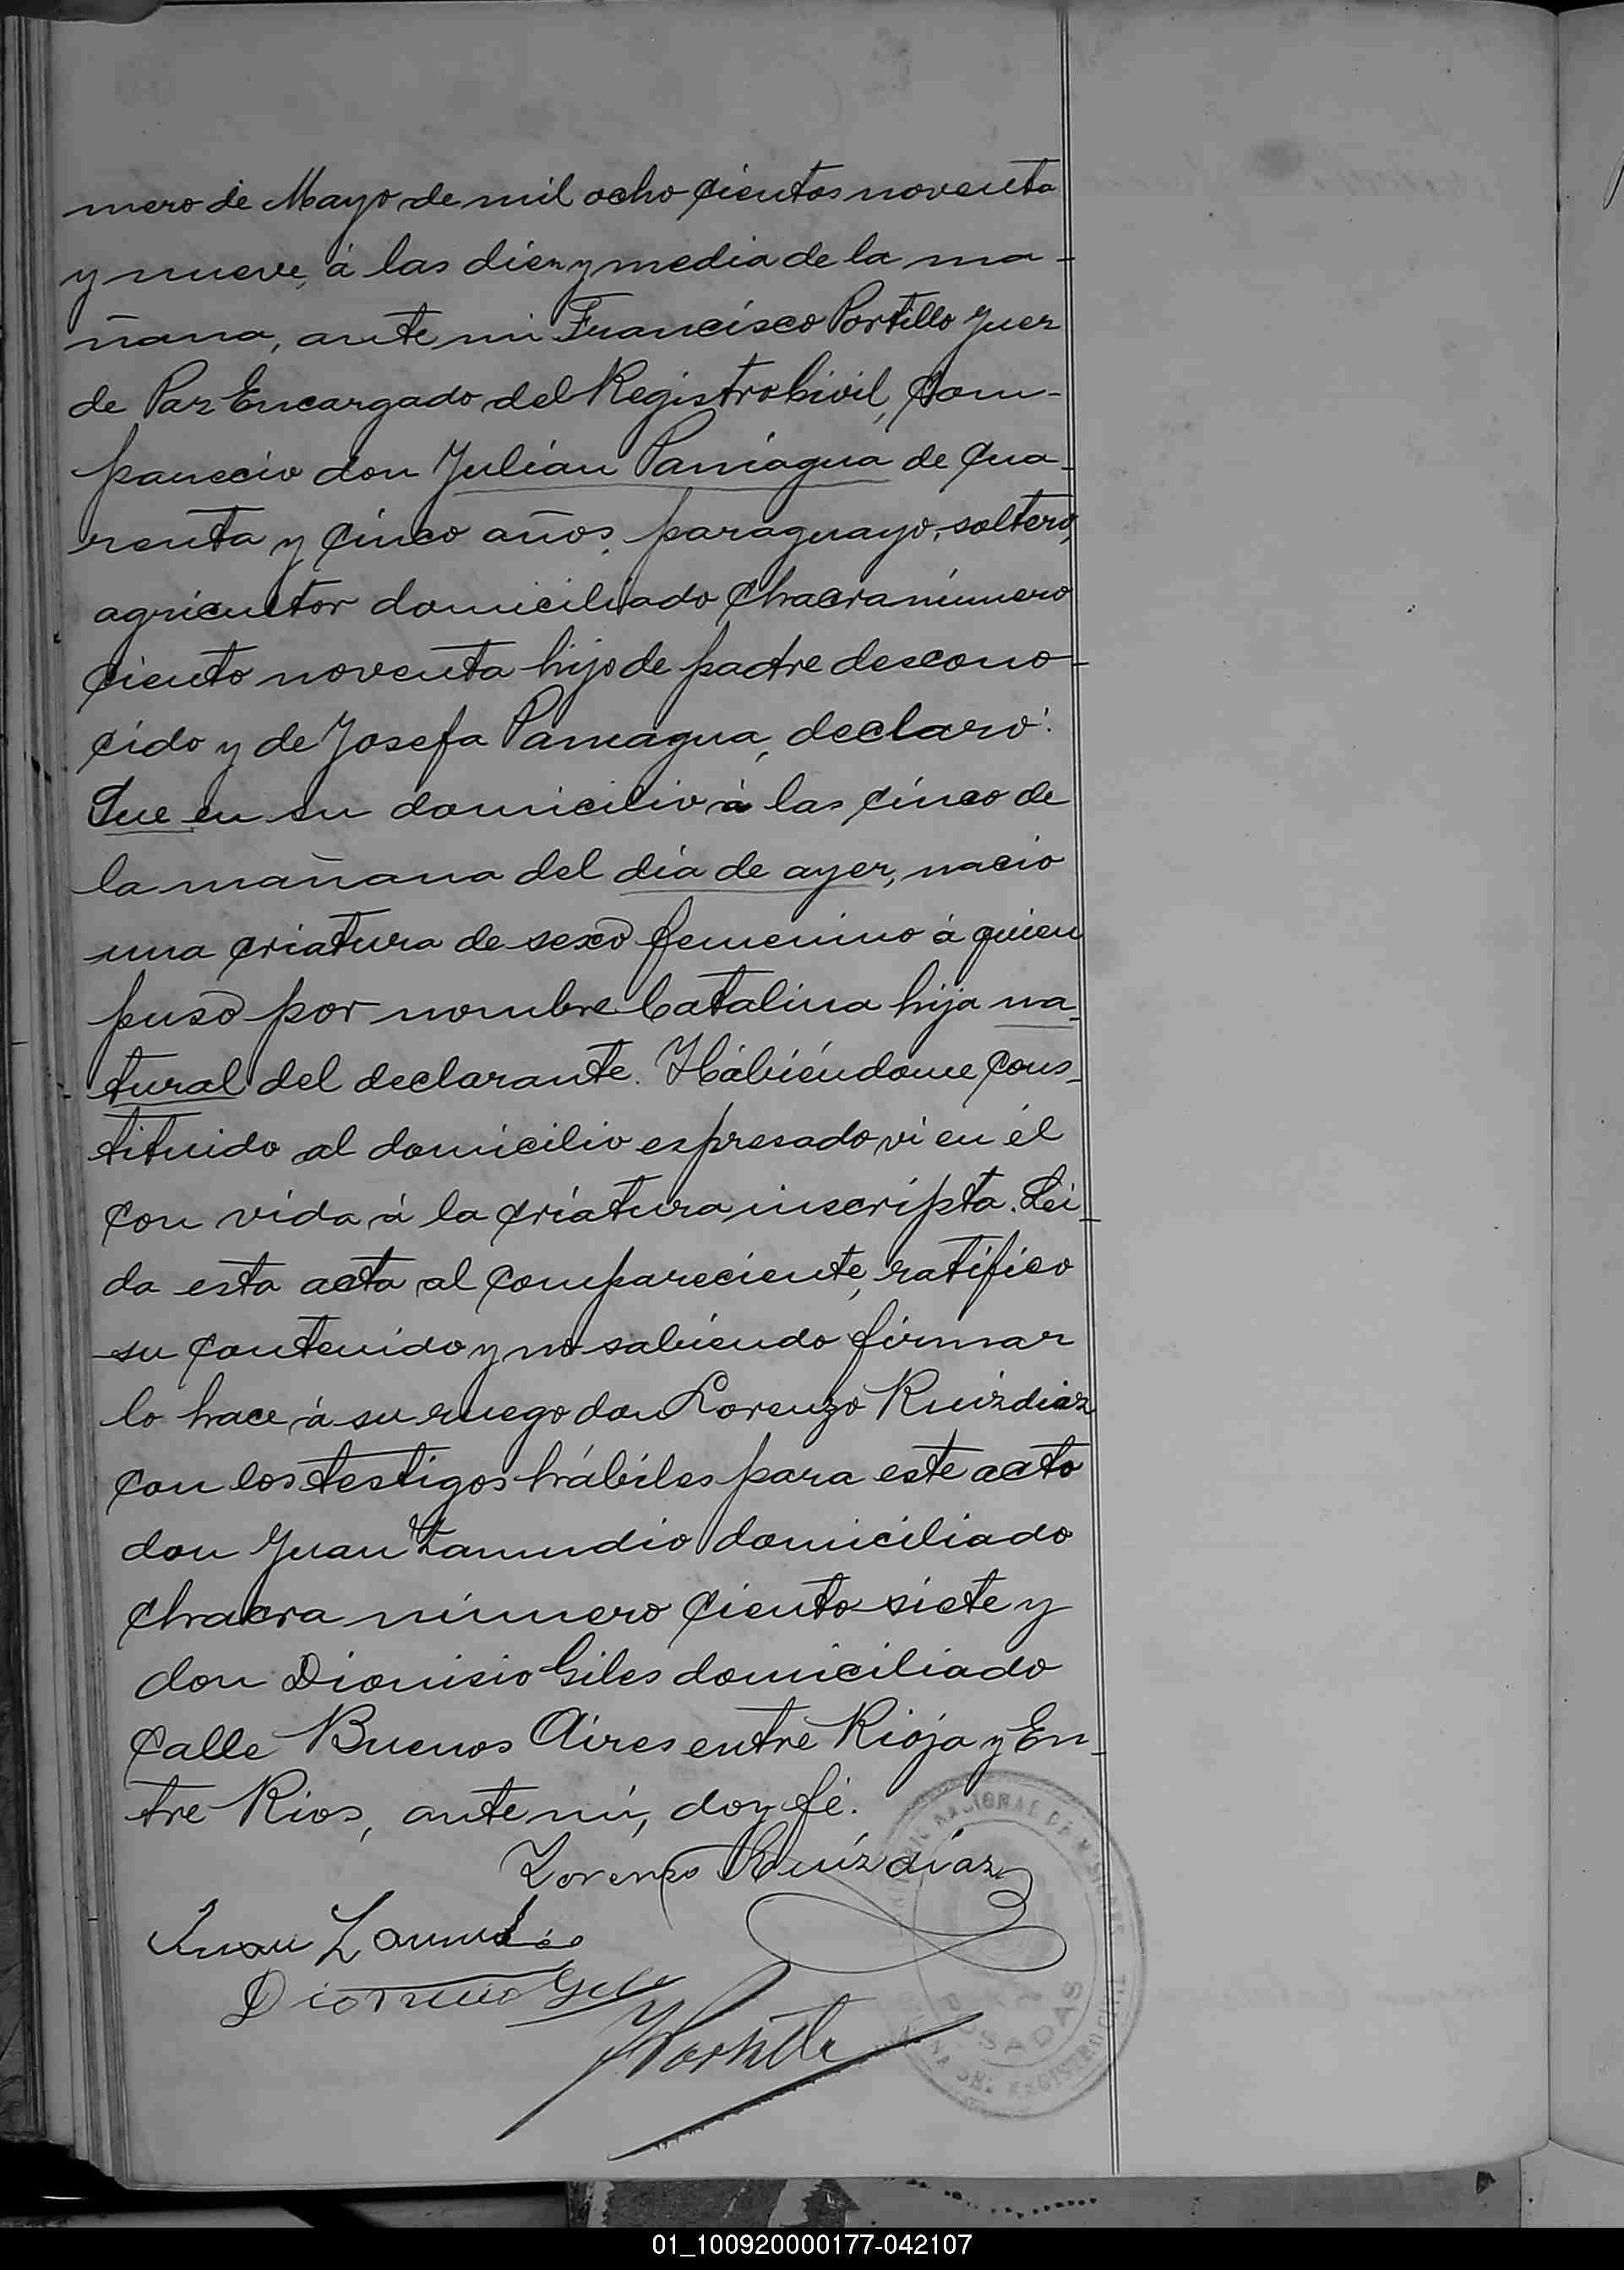 mero de Mayo de mil ocho cientos noventa
y nueve, á las diez y media de la ma-
ñana, ante mi Francisco Portillo Juez
de Paz Encargado del Registro Civil, com-
parecio don Julian Paniagua de cua-
renta y cinco años, paraguayo, soltero,
agricultor domiciliado chacra número
ciento noventa hijo de padre descono-
cido y de Josefa Paniagua, declaró:
Que en su domicilio á las cinco de
la mañana del dia de ayer, nacio
una criatura de sexo femenino á quien
puso por nombre Catalina hija na-
tural del declarante. Habiéndome cons-
tituido al domicilio espresado vi en él
con vida á la criatura inscripta. Lei-
da esta acta al compareciente, ratifico
su contenido y no sabiendo firmar
lo hace á su ruego don Lorenzo Ruizdiaz
con los testigos hábiles para este acto
don Juan Zamudio domiciliado
chacra número ciento siete y
don Dionisio Giles domiciliado
calle Buenos Aires entre Rioja y En-
tre Rios, ante mí, doy fé.
Lorenzo Ruíz díaz
Juan Zamudio
Dionisio Giles
FPortillo
NACIONAL DE MISIONES
POSADAS
DEL REGISTRO CIVIL
01_100920000177-042107